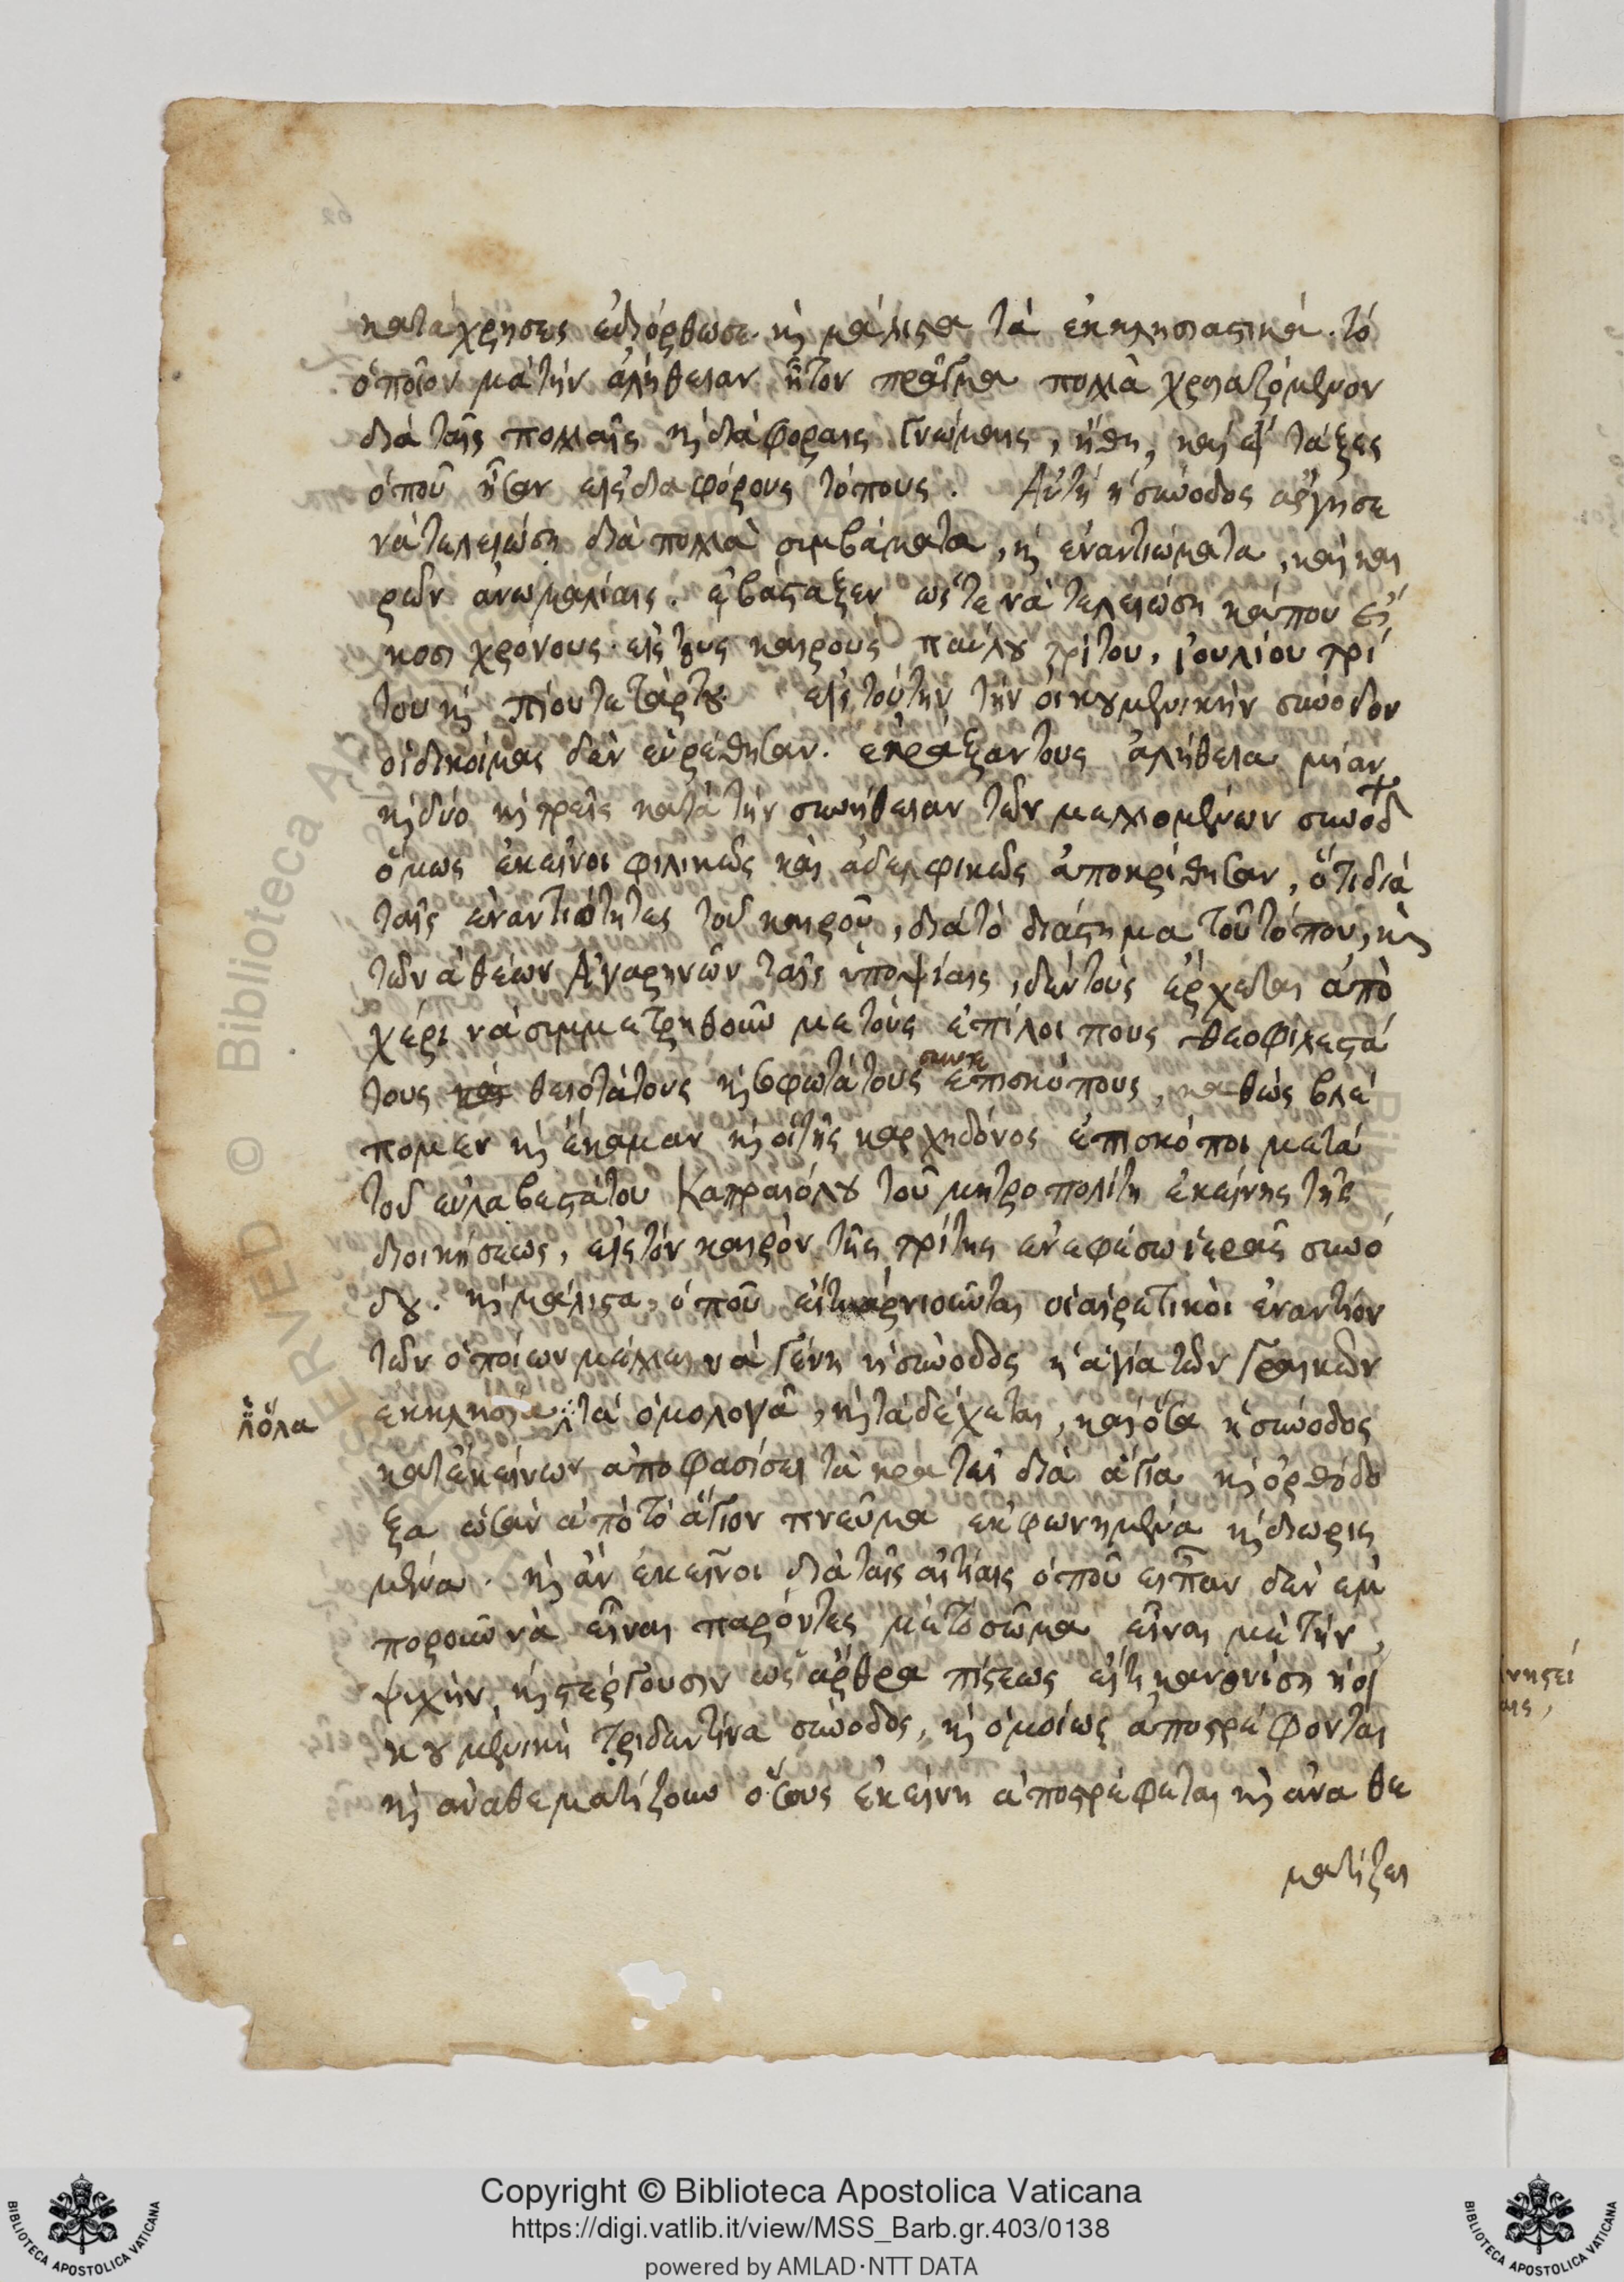 καταχρήσες ἐδιόρθωσε. κὶ μάλιστα τὰ ἐκκλησιαστικά. τὸ
ὁποῖον μὰ τὴν ἀλήθειαν ἦτον πρᾶγμα πολλὰ χρειαζόμενον
διὰ ταῖς πολλαῖς κὶ διάφοραις γνώμαις, ἤθη, καὶ τάξες
ὁποῦ ἦσαν εἰς διαφόρους τόπους. Αὐτὴ ἡ σύνοδος ἄργησε
νὰ τελειώση διὰ πολλὰ συμβάματα, κὶ ἐναντιώματα, καὶ και
ρῶν ἀνωμαλίαις. ἐβάσταξεν ὥστε νὰ τελειώση κάπου εἴ
κοσι χρόνους. εἰς τοὺς καιροὺς παύλου τρίτου, ἰουλίου τρί
του κὶ πίου τετάρτου. εἰς τούτην τὴν οἰκουμενικὴν σύνοδον
οἱ δικοίμας δὲν εὑρέθησαν. ἐκραξαν τους ἀλήθεια μίαν
κὶ δύο κὶ τρεῖς κατὰ τὴν συνήθειαν τῶν μελλομένων συνόδ
ὅμως ἐκεῖνοι φιλικῶς καὶ ἀδελφικῶς ἀποκρίθησαν, ὅτι διὰ
ταῖς ἐναντιότητες τοῦ καιροῦ, διὰ τὸ διάστημα τοῦ τόπου, κὶ
τῶν ἀθέων Ἀγαρηνῶν ταῖς ὑποψίαις, δέν τους ἔρχεται ἀπὸ
χέρι νὰ συμμετρηθοῦν με τοὺς ἐπίλοιπους θεοφιλεστά
τους καὶ θειοτάτους κὶ σοφωτάτους συνε ἐπισκόπους, καθὼς βλέ
πομεν κὶ ἔκαμαν κὶ οἱ τῆς καρχηδόνος ἐπισκόποι μετὰ
τοῦ εὐλαβεστάτου Καπραιόλου τοῦ μητροπολίτη ἐκείνης τῆς
διοικήσεως, εἰς τὸν καιρὸν τῆς τρίτης ἐν ἐφέσω ἱερᾶς συνό
δου. κὶ μάλιστα, ὁποῦ εἴτι ἀρνιοῦνται οἱ αἱρετικοὶ ἐναντίον
τῶν ὁποίων μέλλει νὰ γένη ἡ σύνοδος ἡ ἁγία τῶν Γραικῶν
ἐκκλησία τὰ ὁμολογᾶ, κὶ τὰ δέχεται, καὶ ὅσα ἡ σύνοδος
ὅλα
κατ' ἐκείνων ἀποφασίσει τὰ κρατεῖ διὰ ἅγια κὶ ὀρθόδο
ξα ὡσὰν ἀπὸ τὸ ἅγιον πνεῦμα ἐκφωνημένα κὶ διωρισ
μένα. κὶ ἂν ἐκεῖνοι διὰ ταῖς αἰτίαις ὁποῦ εἶπαν δὲν ἐμ
ποροῦν νὰ εἶναι παρόντες μὲ τὸ σῶμα εἶναι μὲ τὴν
ψυχὴν, κὶ στέργουσιν ὡς ἄρθρα πίστεως εἴτι κανονίση ἡ οἰ
κουμενικὴ τριδεντίνα σύνοδος, κὶ ὁμοίως ἀποστρέφονται
κὶ ἀναθεματίζουν ὅσους ἐκείνη ἀποστρέφεται κὶ ἀναθε
ματίζει
Copyright © Biblioteca Apostolica Vaticana
https://digi.vatlib.it/view/MSS_Barb.gr.403/0138
powered by AMLAD·NTT DATA
BIBLIOTECA APOSTOLICA VATICANA
BIBLIOTECA APOSTOLICA VATICANA